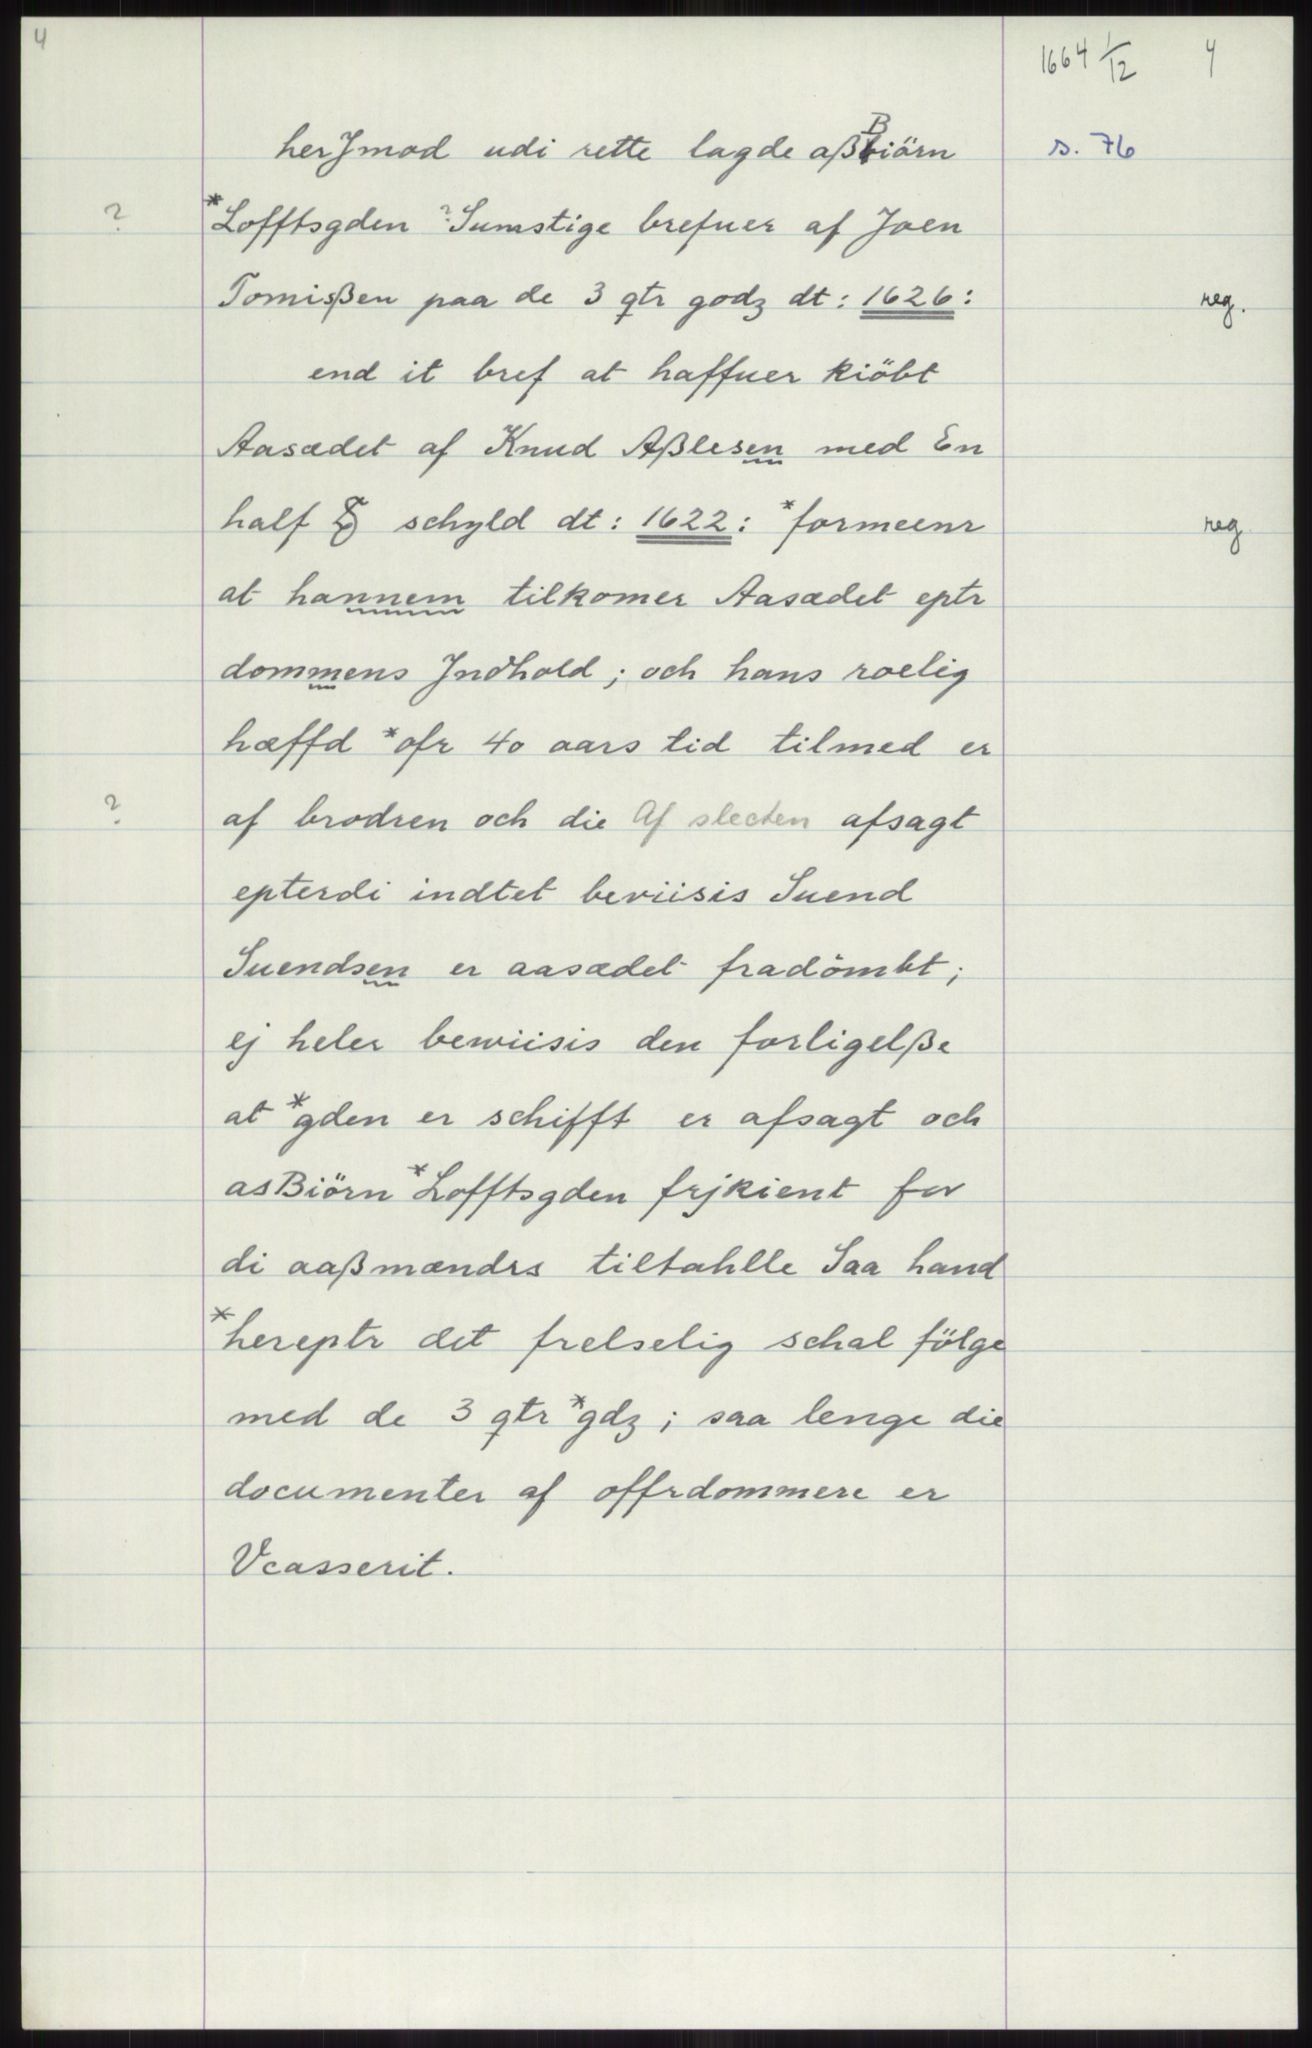 4
1664 1/12 4
herJmod udi rette lagde aßBiörn s. 76
? *Lofftsgden ?Sumstige brefuer af Joen
Tomißen paa de 3 qtr godz dt: 1626: reg.
end it bref at haffuer kiöbt
Aasædet af Knud Aßlesen med En
half schyld dt: 1622: *formeenr reg
at hannem tilkomer Aasædet eptr
dommens Jndhold; och hans roelig
hæffd *ofr 40 aars tid tilmed er
? af brodren och die Af slecten afsagt
epterdi indtet beviisis Suend
Suendsen er aasædet fradömbt;
ej heler bewiisis den forligelße
at *gden er schifft er afsagt och
asBiörn *Lofftsgden frjkient for
di aaßmændrs tiltahlle Saa hand
*hereptr det frelselig schal fölge
med de 3 qtr *gdz; saa lenge die
documenter af offrdommere er
Vcasserit.